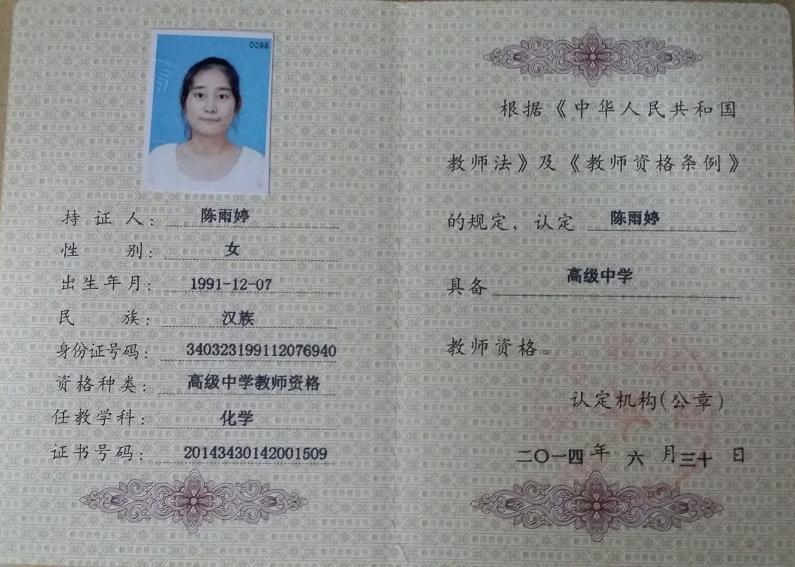 0098
持证人：陈雨婷
性别：女
出生年月：1991-12-07
民族：汉族
身份证号码：340323199112076940
资格种类：高级中学教师资格
任教学科：化学
证书号码：20143430142001509
根据《中华人民共和国
教师法》及《教师资格条例》
的规定，认定 陈雨婷
具备 高级中学
教师资格。
认定机构(公章)
二〇一四年六月三十日